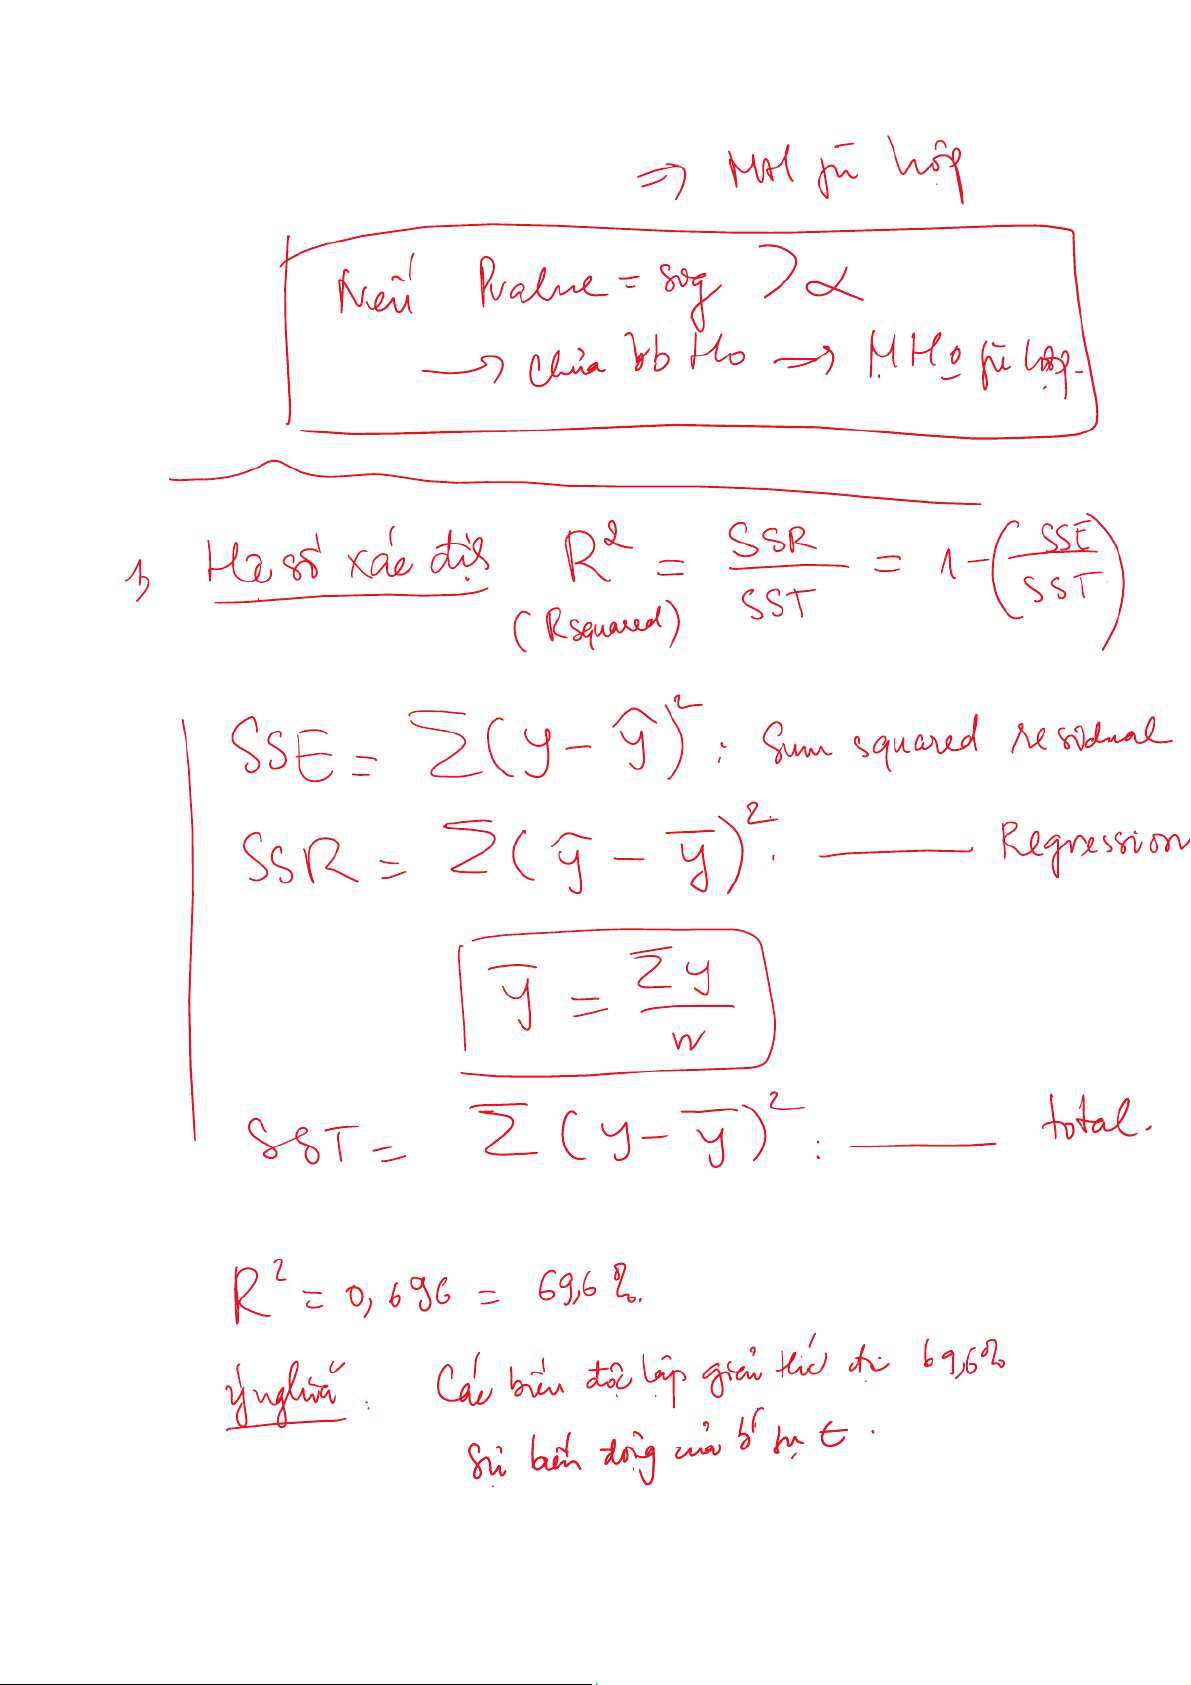 => MH fù hợp
Nếu Pvalue = sig > α
→ chưa bb Ho => MH o fù hợp.
Hệ số xác địh R² = SSR/SST = 1 - (SSE/SST)
(R squared)
SSE = Σ(y - ŷ)² : Sum squared residual
SSR = Σ(ŷ - ȳ)² : —— Regression
ȳ = Σy/n
SST = Σ(y - ȳ)² : —— total.
R² = 0,696 = 69,6%.
Ý nghĩa : Các biến độc lập giải thíc đc 69,6%
Sự biến động của b' fụ t.